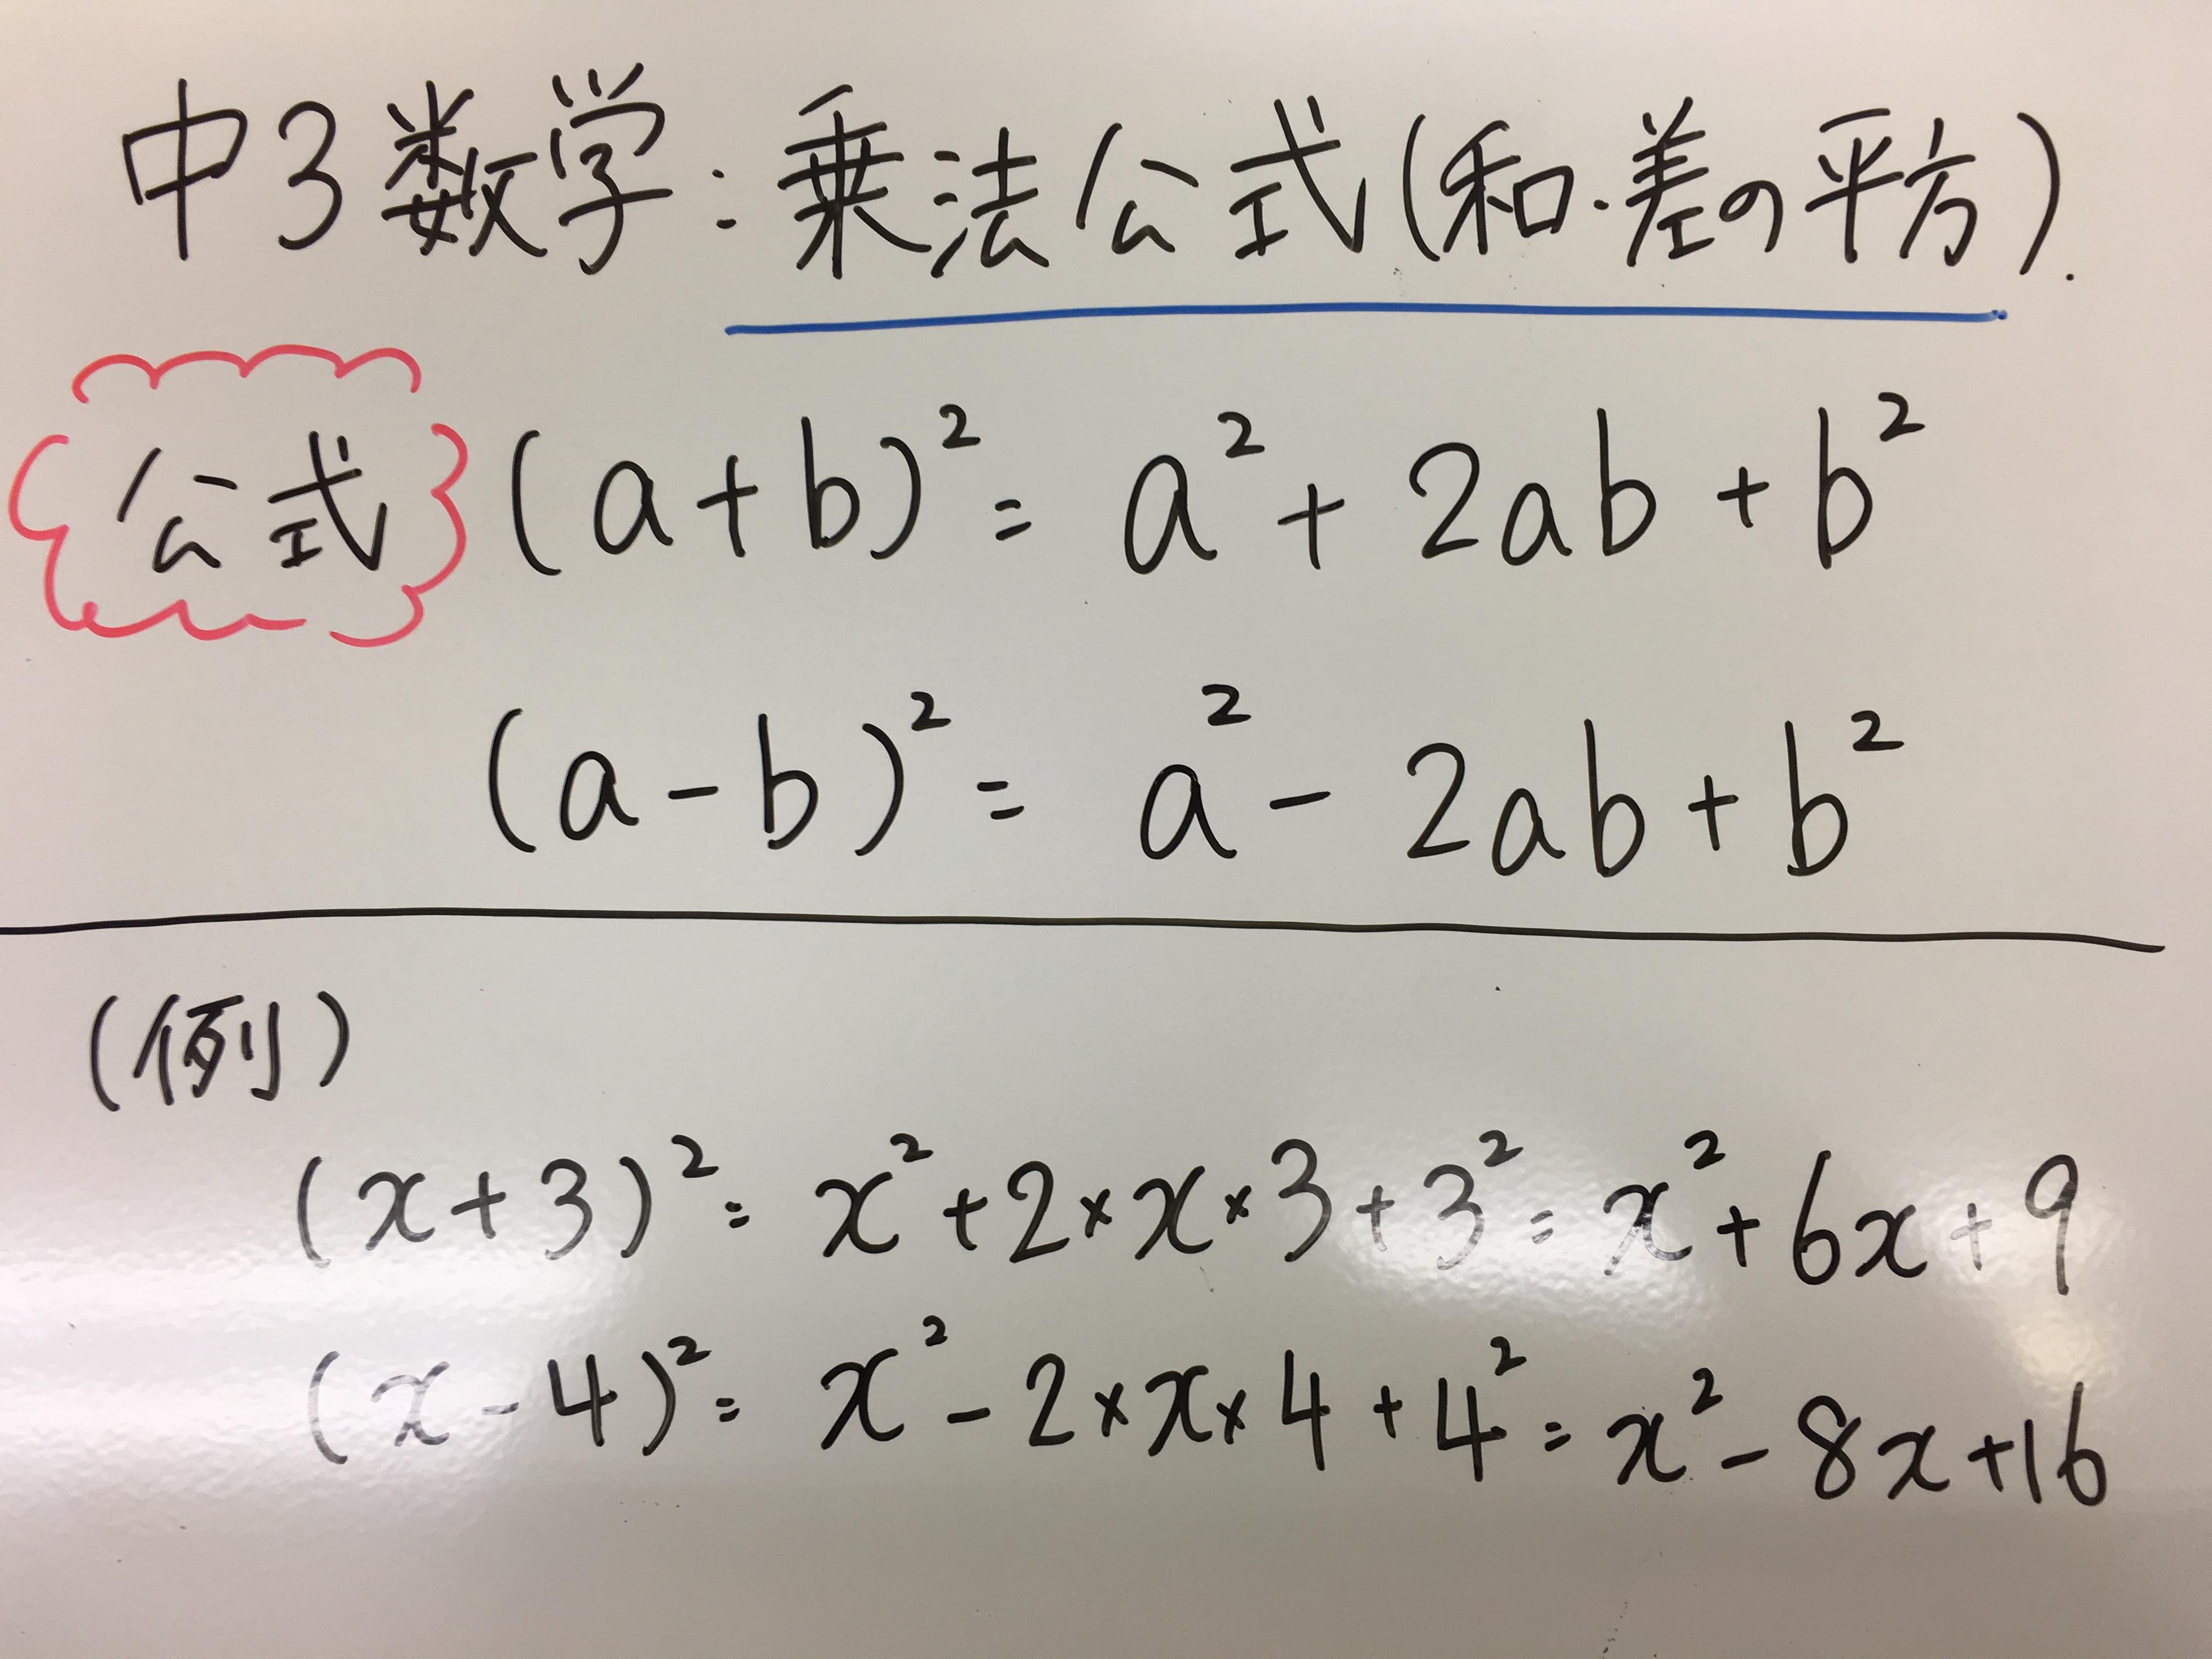 中3数学:乗法公式(和・差の平方).
公式 (a+b)² = a² + 2ab + b²
(a-b)² = a² - 2ab + b²
(例)
(x+3)² = x² + 2×x×3 + 3² = x² + 6x + 9
(x-4)² = x² - 2×x×4 + 4² = x² - 8x + 16